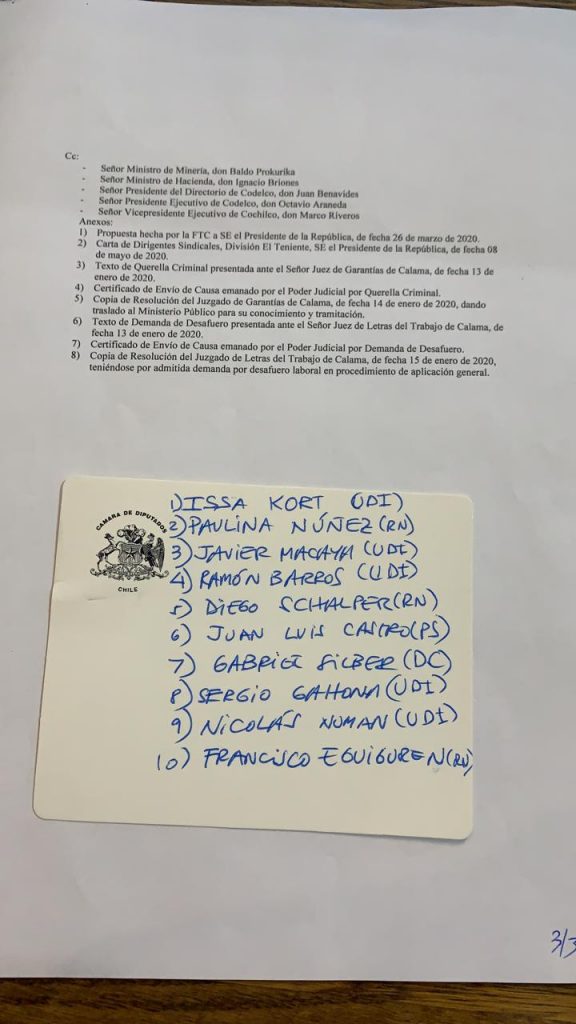 Cc:
- Señor Ministro de Minería, don Baldo Prokurika
- Señor Ministro de Hacienda, don Ignacio Briones
- Señor Presidente del Directorio de Codelco, don Juan Benavides
- Señor Presidente Ejecutivo de Codelco, don Octavio Araneda
- Señor Vicepresidente Ejecutivo de Cochilco, don Marco Riveros
Anexos:
1) Propuesta hecha por la FTC a SE el Presidente de la República, de fecha 26 de marzo de 2020.
2) Carta de Dirigentes Sindicales, División El Teniente, SE el Presidente de la República, de fecha 08
de mayo de 2020.
3) Texto de Querella Criminal presentada ante el Señor Juez de Garantías de Calama, de fecha 13 de
enero de 2020.
4) Certificado de Envío de Causa emanado por el Poder Judicial por Querella Criminal.
5) Copia de Resolución del Juzgado de Garantías de Calama, de fecha 14 de enero de 2020, dando
traslado al Ministerio Público para su conocimiento y tramitación.
6) Texto de Demanda de Desafuero presentada ante el Señor Juez de Letras del Trabajo de Calama, de
fecha 13 de enero de 2020.
7) Certificado de Envío de Causa emanado por el Poder Judicial por Demanda de Desafuero.
8) Copia de Resolución del Juzgado de Letras del Trabajo de Calama, de fecha 15 de enero de 2020,
teniéndose por admitida demanda por desafuero laboral en procedimiento de aplicación general.
CAMARA DE DIPUTADOS
CHILE
1) ISSA KORT (UDI)
2) PAULINA NÚÑEZ (RN)
3) JAVIER MACAYA (UDI)
4) RAMÓN BARROS (UDI)
5) DIEGO SCHALPER (RN)
6) JUAN LUIS CASTRO (PS)
7) GABRIEL SILBER (DC)
8) SERGIO GAHONA (UDI)
9) NICOLÁS NOMAN (UDI)
10) FRANCISCO EGUIGUREN (RN)
3/3